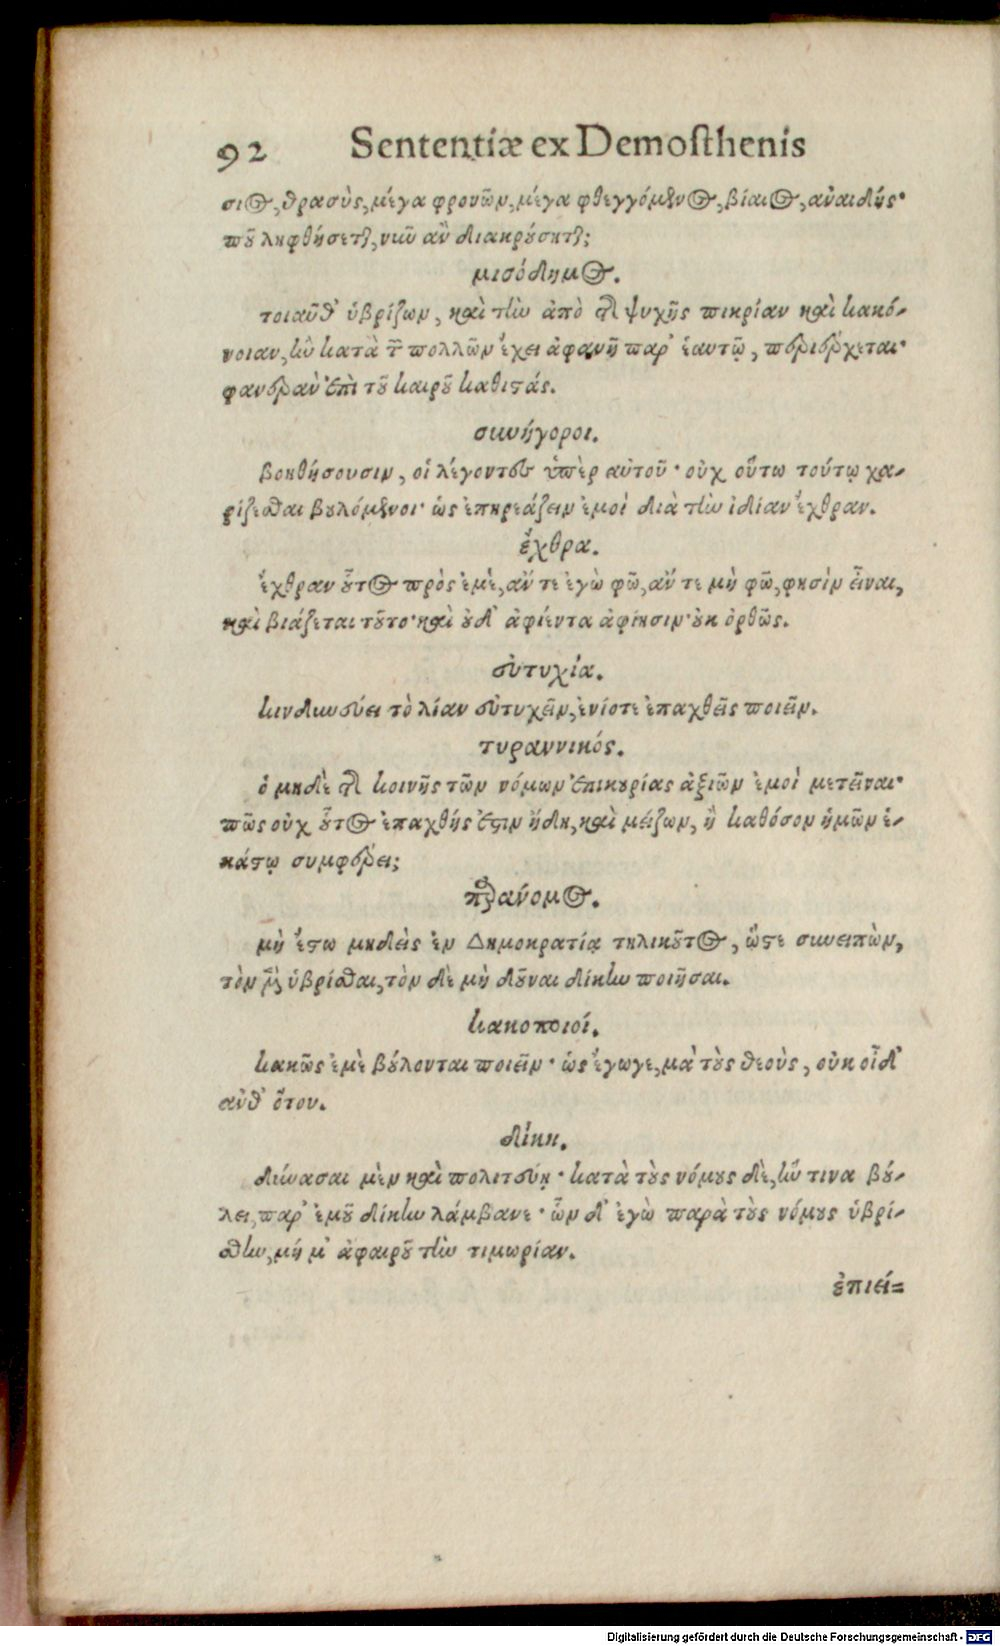 92 Sententiæ ex Demosthenis
σιος, θρασὺς, μέγα φρονῶν, μέγα φθεγγόμενος, βίαιος, ἀναιδής·
ποῦ ληφθήσεται, νιῦ ἂν διακρούσηται;
μισόδημος.
τοιαῦθ' ὑβρίζων, καὶ τὴν ἀπὸ τῆς ψυχῆς πικρίαν καὶ κακό-
νοιαν, ἣν κατὰ τῶν πολλῶν ἔχει ἀφανῆ παρ' ἑαυτῷ, περιέρχεται·
φανερὰν ἐπὶ τοῦ καιροῦ καθιστάς.
συνήγοροι.
βοηθήσουσιν, οἱ λέγοντες ὑπὲρ αὐτοῦ· οὐχ οὕτω τούτῳ χα-
ρίζεσθαι βουλόμενοι· ὡς ἐπηρεάζειν ἐμοὶ διὰ τὴν ἰδίαν ἔχθραν.
ἔχθρα.
ἔχθραν οὗτος πρὸς ἐμὲ, ἄν τε ἐγὼ φῶ, ἄν τε μὴ φῶ, φησὶν εἶναι,
καὶ βιάζεται τοῦτο· καὶ οὐδ' ἀφίεντα ἀφίησιν· οὐκ ὀρθῶς.
εὐτυχία.
κινδυνεύει τὸ λίαν εὐτυχεῖν, ἐνίοτε ἐπαχθεῖς ποιεῖν.
τυραννικός.
ὁ μηδὲ τῆς κοινῆς τῶν νόμων ἐπικουρίας ἀξιῶν ἐμοὶ μετεῖναι·
πῶς οὐχ οὗτος ἐπαχθής ἐστιν ἤδη, καὶ μείζων, ἢ καθόσον ἡμῶν ἑ-
κάστῳ συμφέρει;
παράνομος.
μὴ ἔστω μηδεὶς ἐν Δημοκρατίᾳ τηλικοῦτος, ὥστε συνειπὼν,
τὸν μὲν ὑβρίσθαι, τὸν δὲ μὴ δοῦναι δίκην ποιῆσαι.
κακοποιοί.
κακῶς ἐμὲ βούλονται ποιεῖν· ὡς ἔγωγε, μὰ τοὺς θεοὺς, οὐκ οἶδ'
ἀνθ' ὅτου.
δίκη.
δύνασαι μὲν καὶ πολιτεύῃ· κατὰ τοὺς νόμους δὲ, ἥν τινα βού-
λει, παρ' ἐμοῦ δίκην λάμβανε· ὧν δ' ἐγὼ παρὰ τοὺς νόμους ὑβρί-
σθην, μή μ' ἀφαιροῦ τὴν τιμωρίαν.
ἐπιεί=
Digitalisierung gefördert durch die Deutsche Forschungsgemeinschaft - DFG